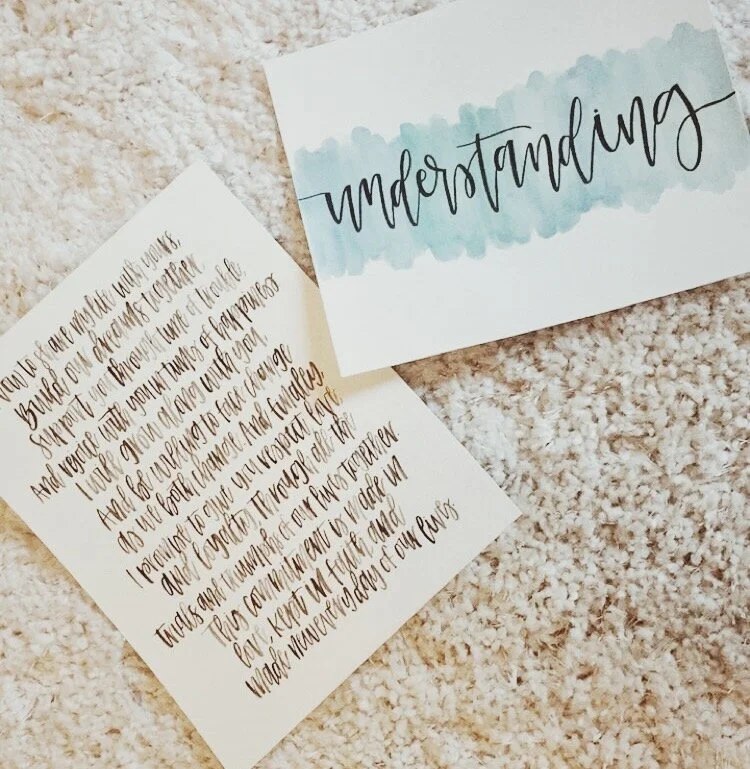 understanding
vow to share my life with yours,
Build our dreams together
support you through time of trouble
And rejoice with you in times of happiness
I will grow along with you
And be willing to face change
as we both change And finally
I promise to give you respect, love
and loyalty, through all the
trials and triumphs of our lives together
This commitment is made in
love, kept in faith and
made new every day of our lives